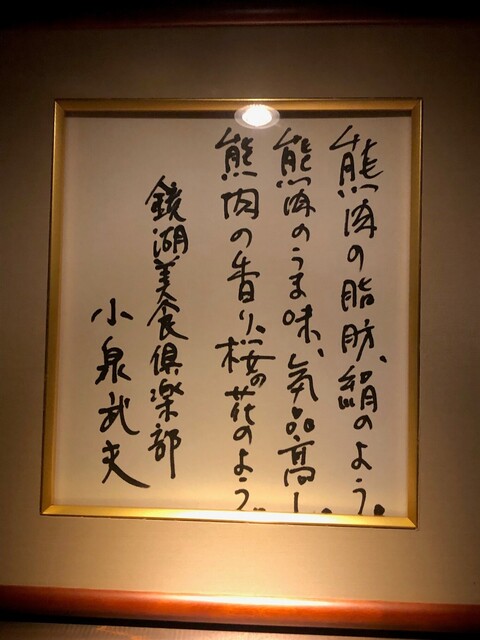 熊肉の脂肪、絹のよう。
熊肉のうま味、気品高し。
熊肉の香り、桜の花のよう。
鏡湖美食倶楽部
小泉武夫